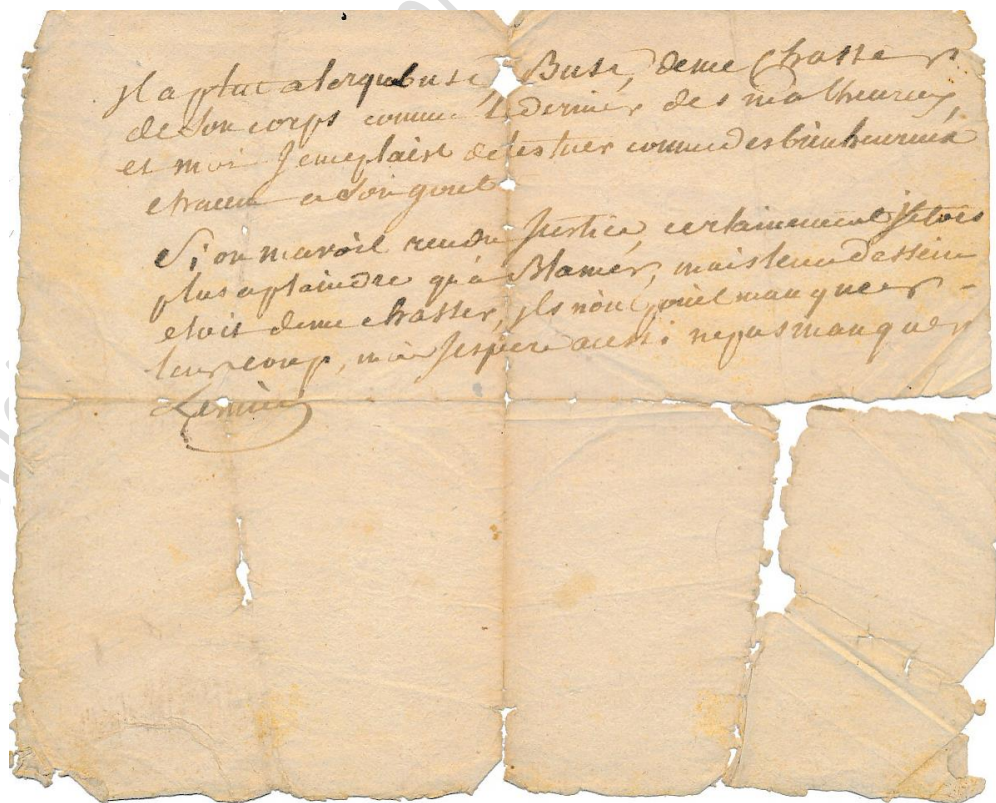 Jl a plut a lorquebuse, Buse, deme Chasser
de Son corps comme le dernier des malheureux,
et moi Jemeplaise detestuer comme des bienheureux
chacun a Son gout
Si on mavoit rendu Justice, certainement Jetois
plus aplaindre qu'à Blamer, mais leur dessein
etoit deme chasser, Jls n'ont point manquer
leur coup, moi Jespere aussi nepas manquer